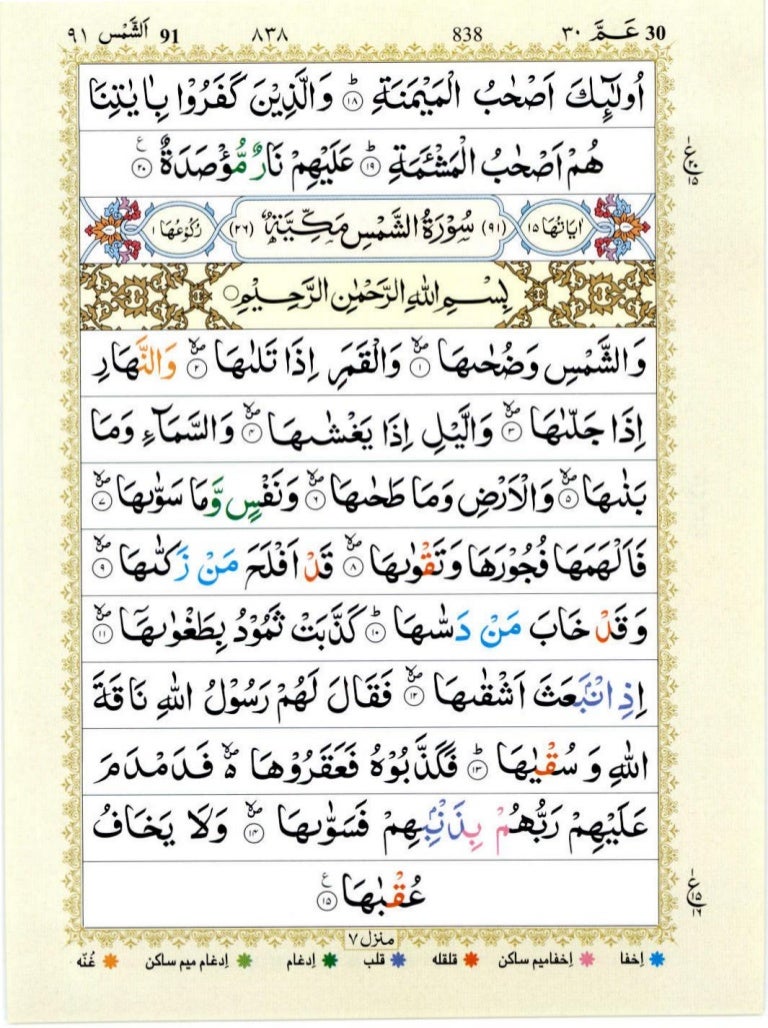 30 عَمَّ ٣٠ 838 ٨٣٨ 91 اَلشَّمْس ٩١
اُولٰٓئِكَ اَصْحٰبُ الْمَيْمَنَةِ ؕ۝١٨ وَالَّذِيْنَ كَفَرُوْا بِاٰيٰتِنَا
هُمْ اَصْحٰبُ الْمَشْـَٔمَةِ ؕ۝١٩ عَلَيْهِمْ نَارٌ مُّؤْصَدَةٌ ۝٢٠ ع
ع ٢٠ ١٥
اٰيَاتُهَا ١٥ (٩١) سُوْرَةُ الشَّمْسِ مَكِّيَّةٌ (٢٦) رُكُوْعُهَا ١
بِسْمِ اللّٰهِ الرَّحْمٰنِ الرَّحِيْمِ ۝
وَالشَّمْسِ وَضُحٰىهَا ۝١ۙ وَالْقَمَرِ اِذَا تَلٰىهَا ۝٢ۙ وَالنَّهَارِ
اِذَا جَلّٰىهَا ۝٣ۙ وَالَّيْلِ اِذَا يَغْشٰىهَا ۝٤ۙ وَالسَّمَآءِ وَمَا
بَنٰىهَا ۝٥ۙ وَالْاَرْضِ وَمَا طَحٰىهَا ۝٦ۙ وَنَفْسٍ وَّمَا سَوّٰىهَا ۝٧ۙ
فَاَلْهَمَهَا فُجُوْرَهَا وَتَقْوٰىهَا ۝٨ۙ قَدْ اَفْلَحَ مَنْ زَكّٰىهَا ۝٩ۙ
وَقَدْ خَابَ مَنْ دَسّٰىهَا ؕ۝١٠ كَذَّبَتْ ثَمُوْدُ بِطَغْوٰىهَاۤ ۝١١ۙ
اِذِ انْۢبَعَثَ اَشْقٰىهَا ۝١٢ۙ فَقَالَ لَهُمْ رَسُوْلُ اللّٰهِ نَاقَةَ
اللّٰهِ وَسُقْيٰهَا ؕ۝١٣ فَكَذَّبُوْهُ فَعَقَرُوْهَا ۙ۬ فَدَمْدَمَ
عَلَيْهِمْ رَبُّهُمْ بِذَنْۢبِهِمْ فَسَوّٰىهَا ۝١٤ۙ وَلَا يَخَافُ
عُقْبٰهَا ۝١٥ ع
ع ١٥ ١٦
منزل ٧
اِخفا اِخفامیم ساکن قلقله قلب اِدغام اِدغام میم ساکن غُنّه